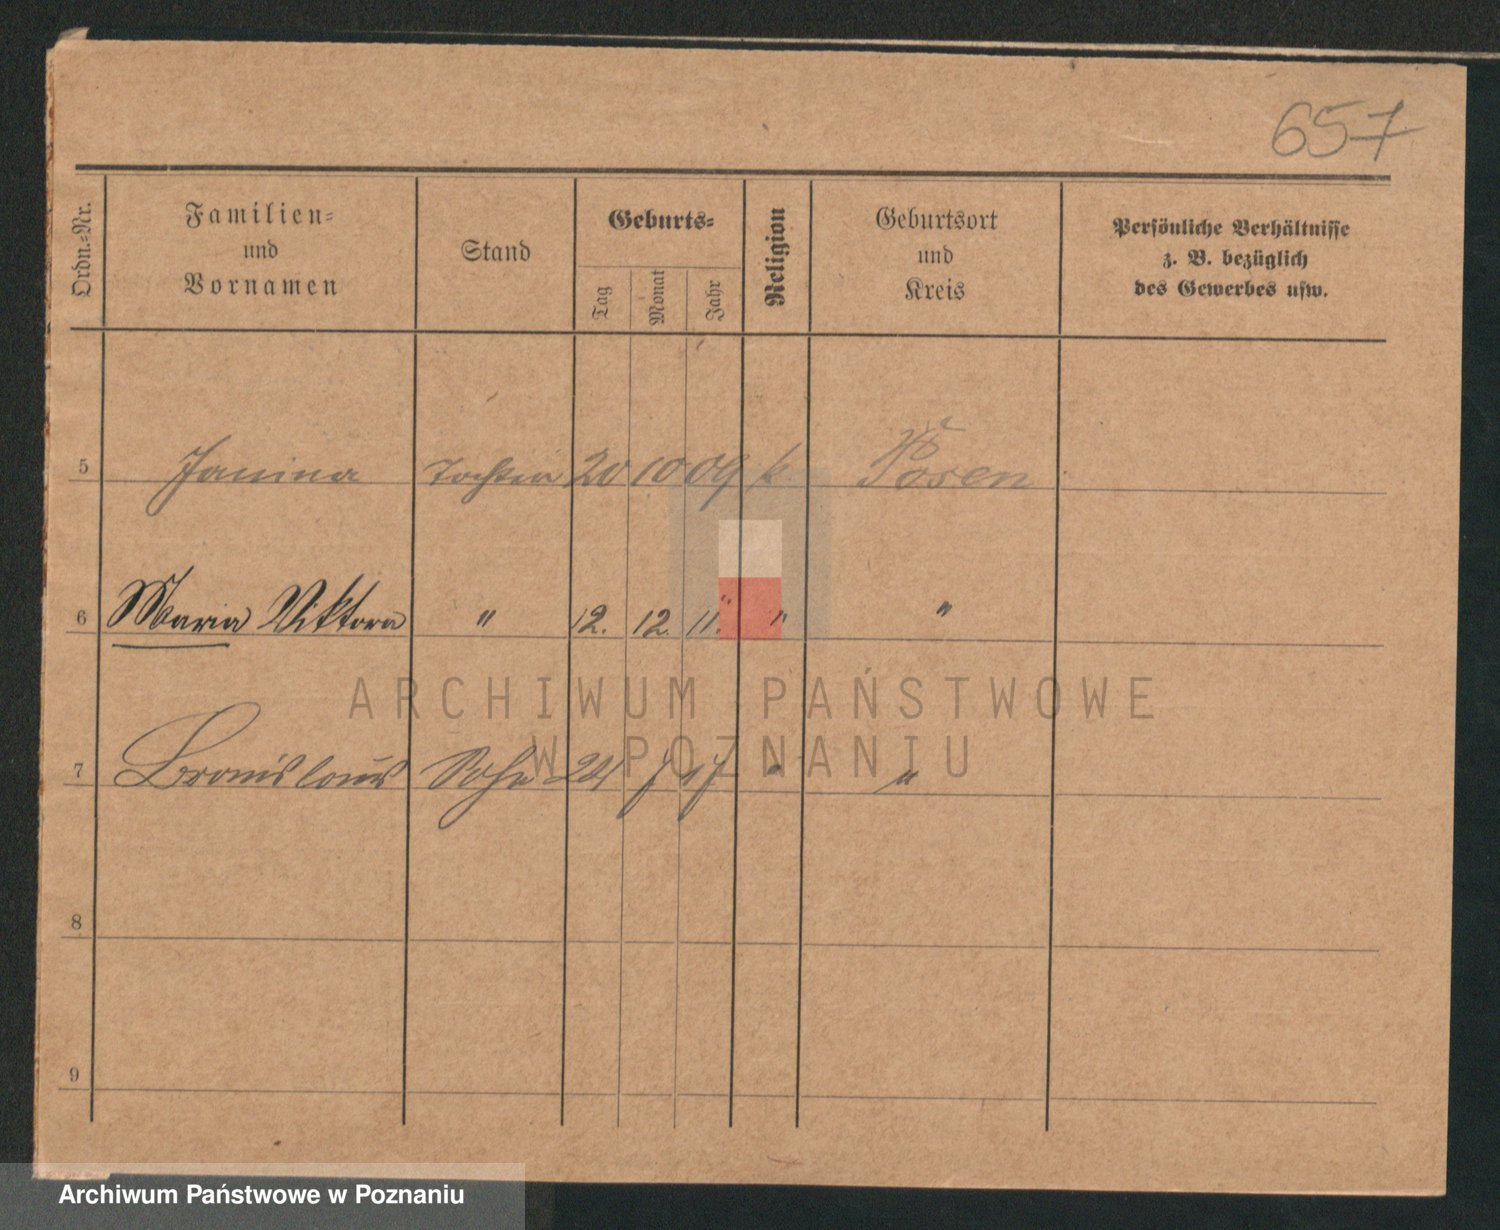 657
Ordn.-Nr.
Familien-
und
Vornamen
Stand
Geburts-
Tag
Monat
Jahr
Religion
Geburtsort
und
Kreis
Persönliche Verhältnisse
z. B. bezüglich
des Gewerbes usw.
5 Janina Tochter 20 10 09 k. Posen
6 Maria Viktora " 12. 12. 11. " "
ARCHIWUM PAŃSTWOWE
W POZNANIU
7 Bronislaus Sohn 24 7 17 " "
8
9
Archiwum Państwowe w Poznaniu